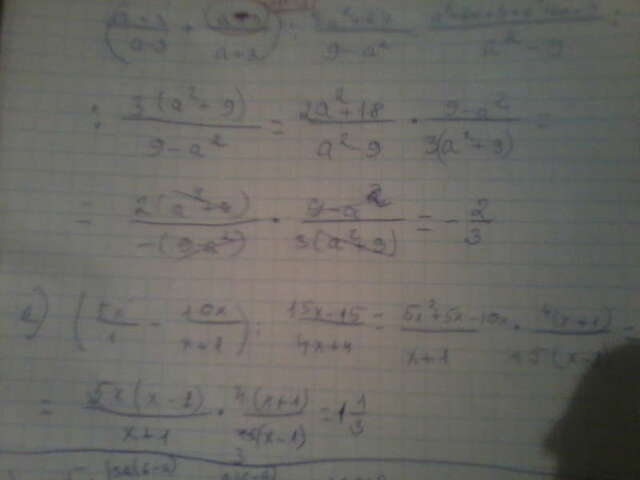 (a+3/a-3 + a-3/a+3) : 3a²+27/9-a² = a²+6a+9+a²-6a+9/a²-9 :
: 3(a²+9)/9-a² = 2a²+18/a²-9 · 9-a²/3(a²+9) =
= 2(a²+9)/-(9-a²) · 9-a²/3(a²+9) = -2/3
е) (5x/1 - 10x/x+1) : 15x-15/4x+4 = 5x²+5x-10x/x+1 · 4(x+1)/15(x-1) =
= 5x(x-1)/x+1 · 4(x+1)/15(x-1) = 1 1/3